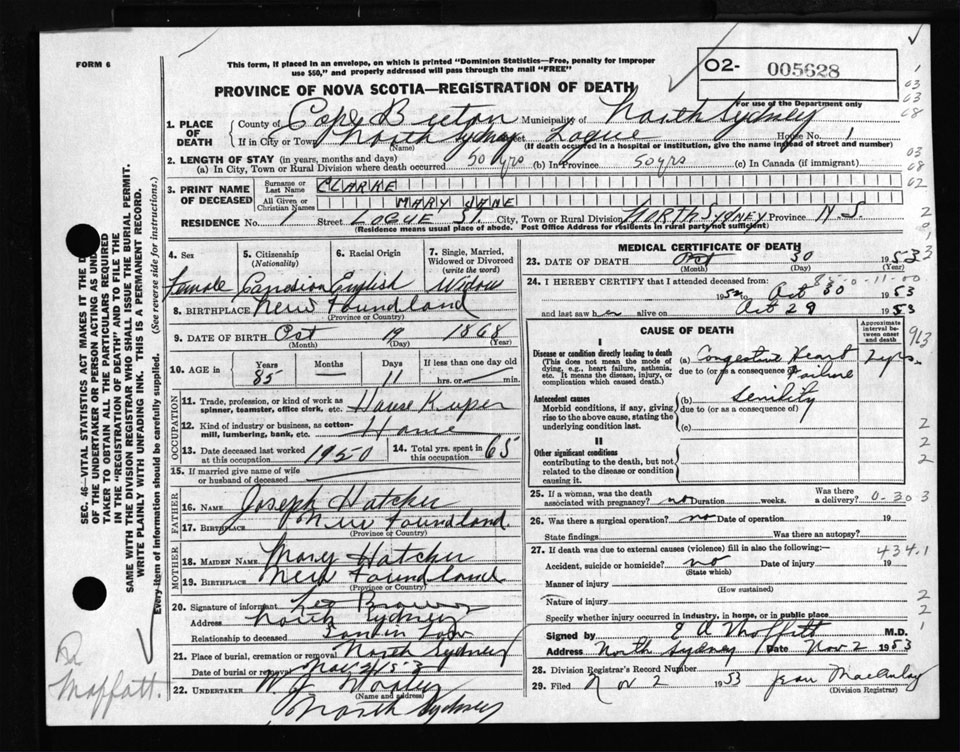 FORM 6
This form, if placed in an envelope, on which is printed "Dominion Statistics—Free, penalty for improper
use $50," and properly addressed will pass through the mail "FREE"
O2- 005628
PROVINCE OF NOVA SCOTIA—REGISTRATION OF DEATH
For use of the Department only
1. PLACE OF DEATH County of Cape Breton Municipality of North Sydney
If in City or Town North Sydney Logue House No. 1
(Name) (If death occurred in a hospital or institution, give the name instead of street and number)
2. LENGTH OF STAY (in years, months and days)
(a) In City, Town or Rural Division where death occurred 50 yrs (b) In Province 50 yrs (c) In Canada (if immigrant)
3. PRINT NAME OF DECEASED Surname or Last Name CLARKE
All Given or Christian Names MARY JANE
RESIDENCE No. 1 Street LOGUE ST. City, Town or Rural Division NORTH SYDNEY Province N.S.
(Residence means usual place of abode. Post Office Address for residents in rural parts not sufficient)
4. Sex 5. Citizenship (Nationality) 6. Racial Origin 7. Single, Married, Widowed or Divorced (write the word)
Female Canadian English Widow
8. BIRTHPLACE New Foundland
(Province or Country)
9. DATE OF BIRTH Oct 19 1868
(Month) (Day) (Year)
10. AGE in Years 85 Days 11 If less than one day old hrs. or min.
OCCUPATION
11. Trade, profession, or kind of work as spinner, teamster, office clerk, etc. House Kuper
12. Kind of industry or business, as cotton-mill, lumbering, bank, etc. Home
13. Date deceased last worked at this occupation 1950 14. Total yrs. spent in this occupation 65
15. If married give name of wife or husband of deceased
FATHER
16. NAME Joseph Hatcher
17. BIRTHPLACE New Foundland
(Province or Country)
MOTHER
18. MAIDEN NAME Mary Hatcher
19. BIRTHPLACE New Foundland
(Province or Country)
20. Signature of informant Leo
Address North Sydney
Relationship to deceased Son in Law
21. Place of burial, cremation or removal North Sydney
Date of burial or removal Nov 2/53
22. UNDERTAKER W J Dooley
(Name and address)
North Sydney
MEDICAL CERTIFICATE OF DEATH
23. DATE OF DEATH Oct 30 1953
(Month) (Day) (Year)
24. I HEREBY CERTIFY that I attended deceased from:
1952 to Oct 30 1953
and last saw her alive on Oct 29 1953
CAUSE OF DEATH
Approximate interval between onset and death
I
Disease or condition directly leading to death (a) Congestive Heart Failure 2 yrs.
(This does not mean the mode of dying, e.g., heart failure, asthenia, etc. It means the disease, injury, or complication which caused death.) due to (or as a consequence of)
Antecedent causes (b) Senility
Morbid conditions, if any, giving rise to the above cause, stating the underlying condition last. due to (or as a consequence of)
(c)
II
Other significant conditions
contributing to the death, but not related to the disease or condition causing it.
25. If a woman, was the death associated with pregnancy? no Duration weeks. Was there a delivery?
0-30 3
26. Was there a surgical operation? no Date of operation 19
State findings Was there an autopsy?
27. If death was due to external causes (violence) fill in also the following:— 434.1
Accident, suicide or homicide? no Date of injury 19
(State which)
Manner of injury
(How sustained)
Nature of injury
Specify whether injury occurred in industry, in home, or in public place
Signed by E A Moffatt M.D.
Address North Sydney Date Nov 2 1953
28. Division Registrar's Record Number
29. Filed Nov 2 1953 Jean MacAulay
(Division Registrar)
SEC. 46—VITAL STATISTICS ACT MAKES IT THE D
OF THE UNDERTAKER OR PERSON ACTING AS UND
TAKER TO OBTAIN ALL THE PARTICULARS REQUIRED
IN THE "REGISTRATION OF DEATH" AND TO FILE THE
SAME WITH THE DIVISION REGISTRAR WHO SHALL ISSUE THE BURIAL PERMIT.
WRITE PLAINLY WITH UNFADING INK. THIS IS A PERMANENT RECORD.
Every item of information should be carefully supplied. (See reverse side for instructions.)
Dr
Moffatt.